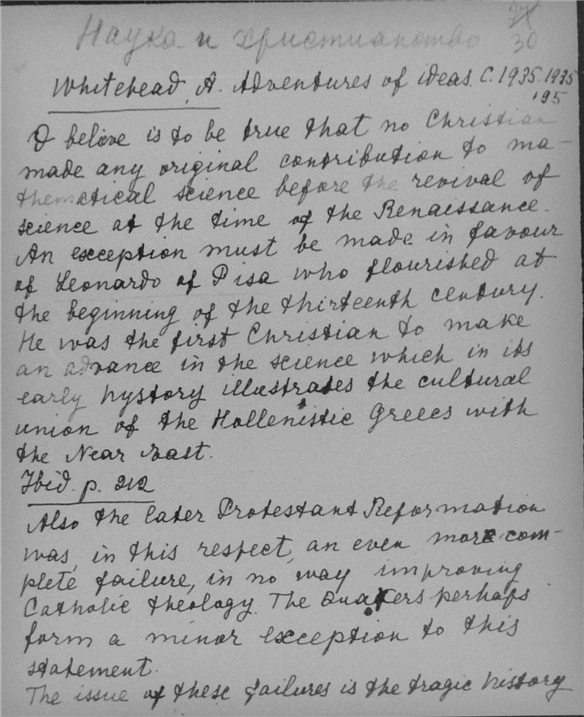 Наука и христианство
30
Whitehead, A. Adventures of ideas. C. 1935. 1935
'195
I believe is to be true that no Christian
made any original contribution to ma-
thematical science before the revival of
science at the time of the Renaissance.
An exception must be made in favour
of Leonardo of Pisa who flourished at
the beginning of the thirteenth century.
He was the first Christian to make
an advance in the science which in its
early hystory illustrates the cultural
union of the Hollenistic Greecs with
the Near East.
Ibid. p. 212
Also the later Protestant Reformation
was, in this respect, an even more com-
plete failure, in no way improving
Catholic theology. The Quakers perhaps
form a minor exception to this
statement.
The issue of these failures is the tragic history